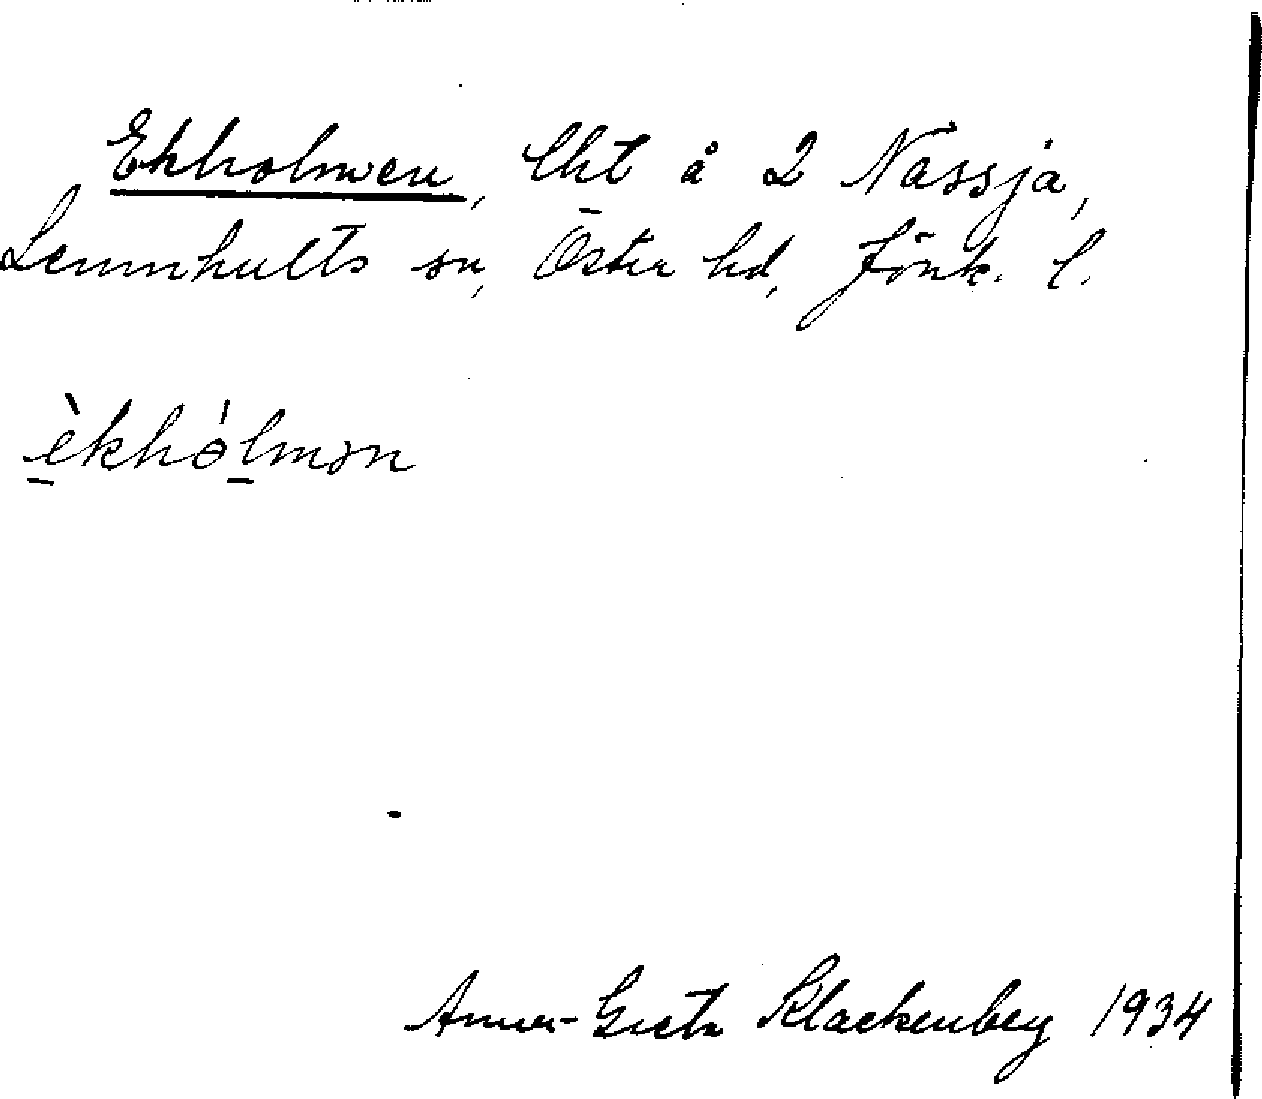 Ekholmen, lht å 2 Nässja,
Lemnhults sn, Östra hd, Jönk. l.
èkhólmən
Anna-Greta Klackenberg 1934